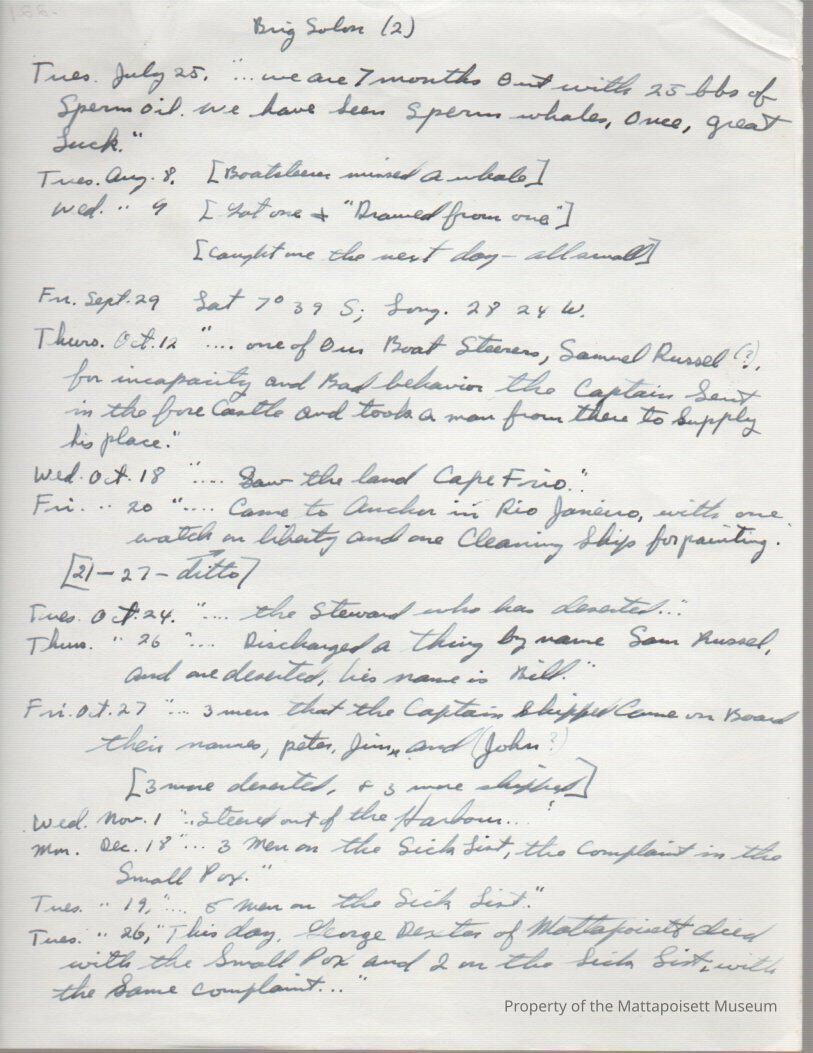 Brig Solon (2)
Tues. July 25, "... we are 7 months out with 25 bbs of
Sperm oil. we have seen Sperm whales, once, great
Luck."
Tues. Aug. 8, [Boatsteerer missed a whale]
Wed. " 9 [Got one + "Drawed from one"]
[Caught one the next day - all small]
Fri. Sept. 29 Lat 7° 39 S; Long. 28 24 W.
Thurs. Oct. 12 ".... one of Our Boat Steerers, Samuel Russel (?),
for incapacity and Bad behavior the Captain Sent
in the fore Castle and took a man from there to Supply
his place."
Wed. Oct. 18 ".... Saw the land Cape Frio."
Fri. " 20 ".... Came to Anchor in Rio Janeiro, with one
watch on liberty and one Cleaning Ship for painting.
[21-27-ditto]
Tues. Oct. 24. ".... the Steward who has deserted..."
Thurs. " 26 ".... Discharged a thing by name Sam Russel,
and one deserted, his name is Bill."
Fri. Oct. 27 "... 3 men that the Captain Shipped Came on Board
their names, peter, Jim, and (John?)
[3 more deserted, & 3 more shipped]
Wed. Nov. 1 "..Steered out of the Harbour..."
Mon. Dec. 18 "... 3 Men on the Sick List, the Complaint in the
Small Pox."
Tues. " 19, "... 5 men on the Sick List."
Tues. " 26, "This day, George Dexter of Mattapoisett died
with the Small Pox and 2 on the Sick List, with
the Same complaint..."
Property of the Mattapoisett Museum